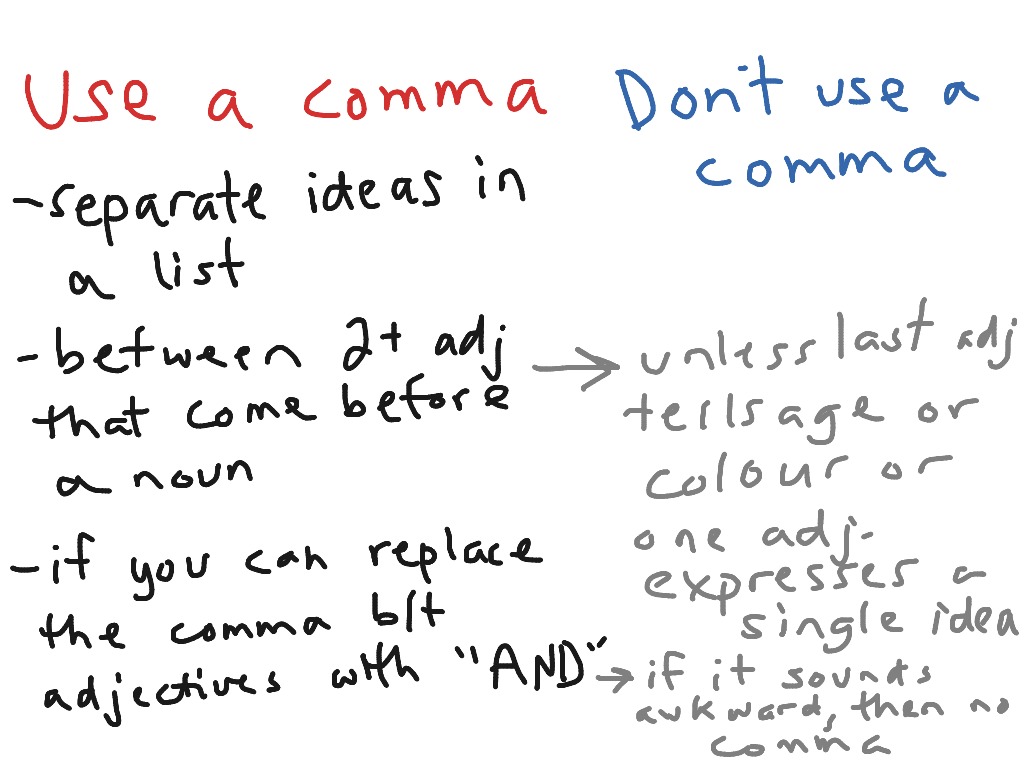 Use a comma
- separate ideas in
a list
- between 2+ adj
that come before
a noun
- if you can replace
the comma b/t
adjectives with "AND"
Don't use a
comma
→ unless last adj
tells age or
colour or
one adj.
expresses a
single idea
→ if it sounds
awkward, then no
comma